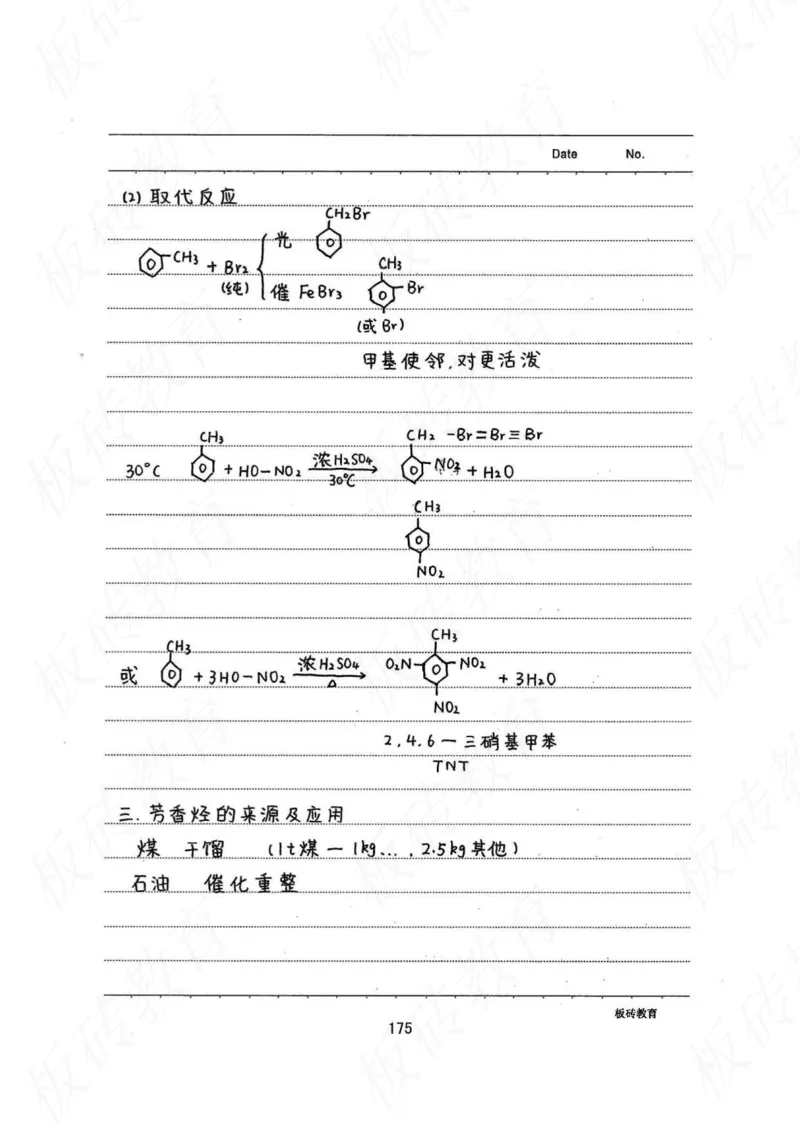 Date No.
(2) 取代反应
CH2Br
光
CH3 + Br2
(纯)
CH3
催 FeBr3 Br
(或 Br)
甲基使邻.对更活泼
CH3 CH2 -Br=Br≡Br
30°C + HO-NO2 浓H2SO4 30℃ NO2 + H2O
CH3
NO2
CH3 CH3
或 + 3HO-NO2 浓H2SO4 △ O2N NO2 + 3H2O
NO2
2.4.6-三硝基甲苯
TNT
三.芳香烃的来源及应用
煤 干馏 (1t煤 - 1kg... , 2.5kg其他)
石油 催化重整
板砖教育
175